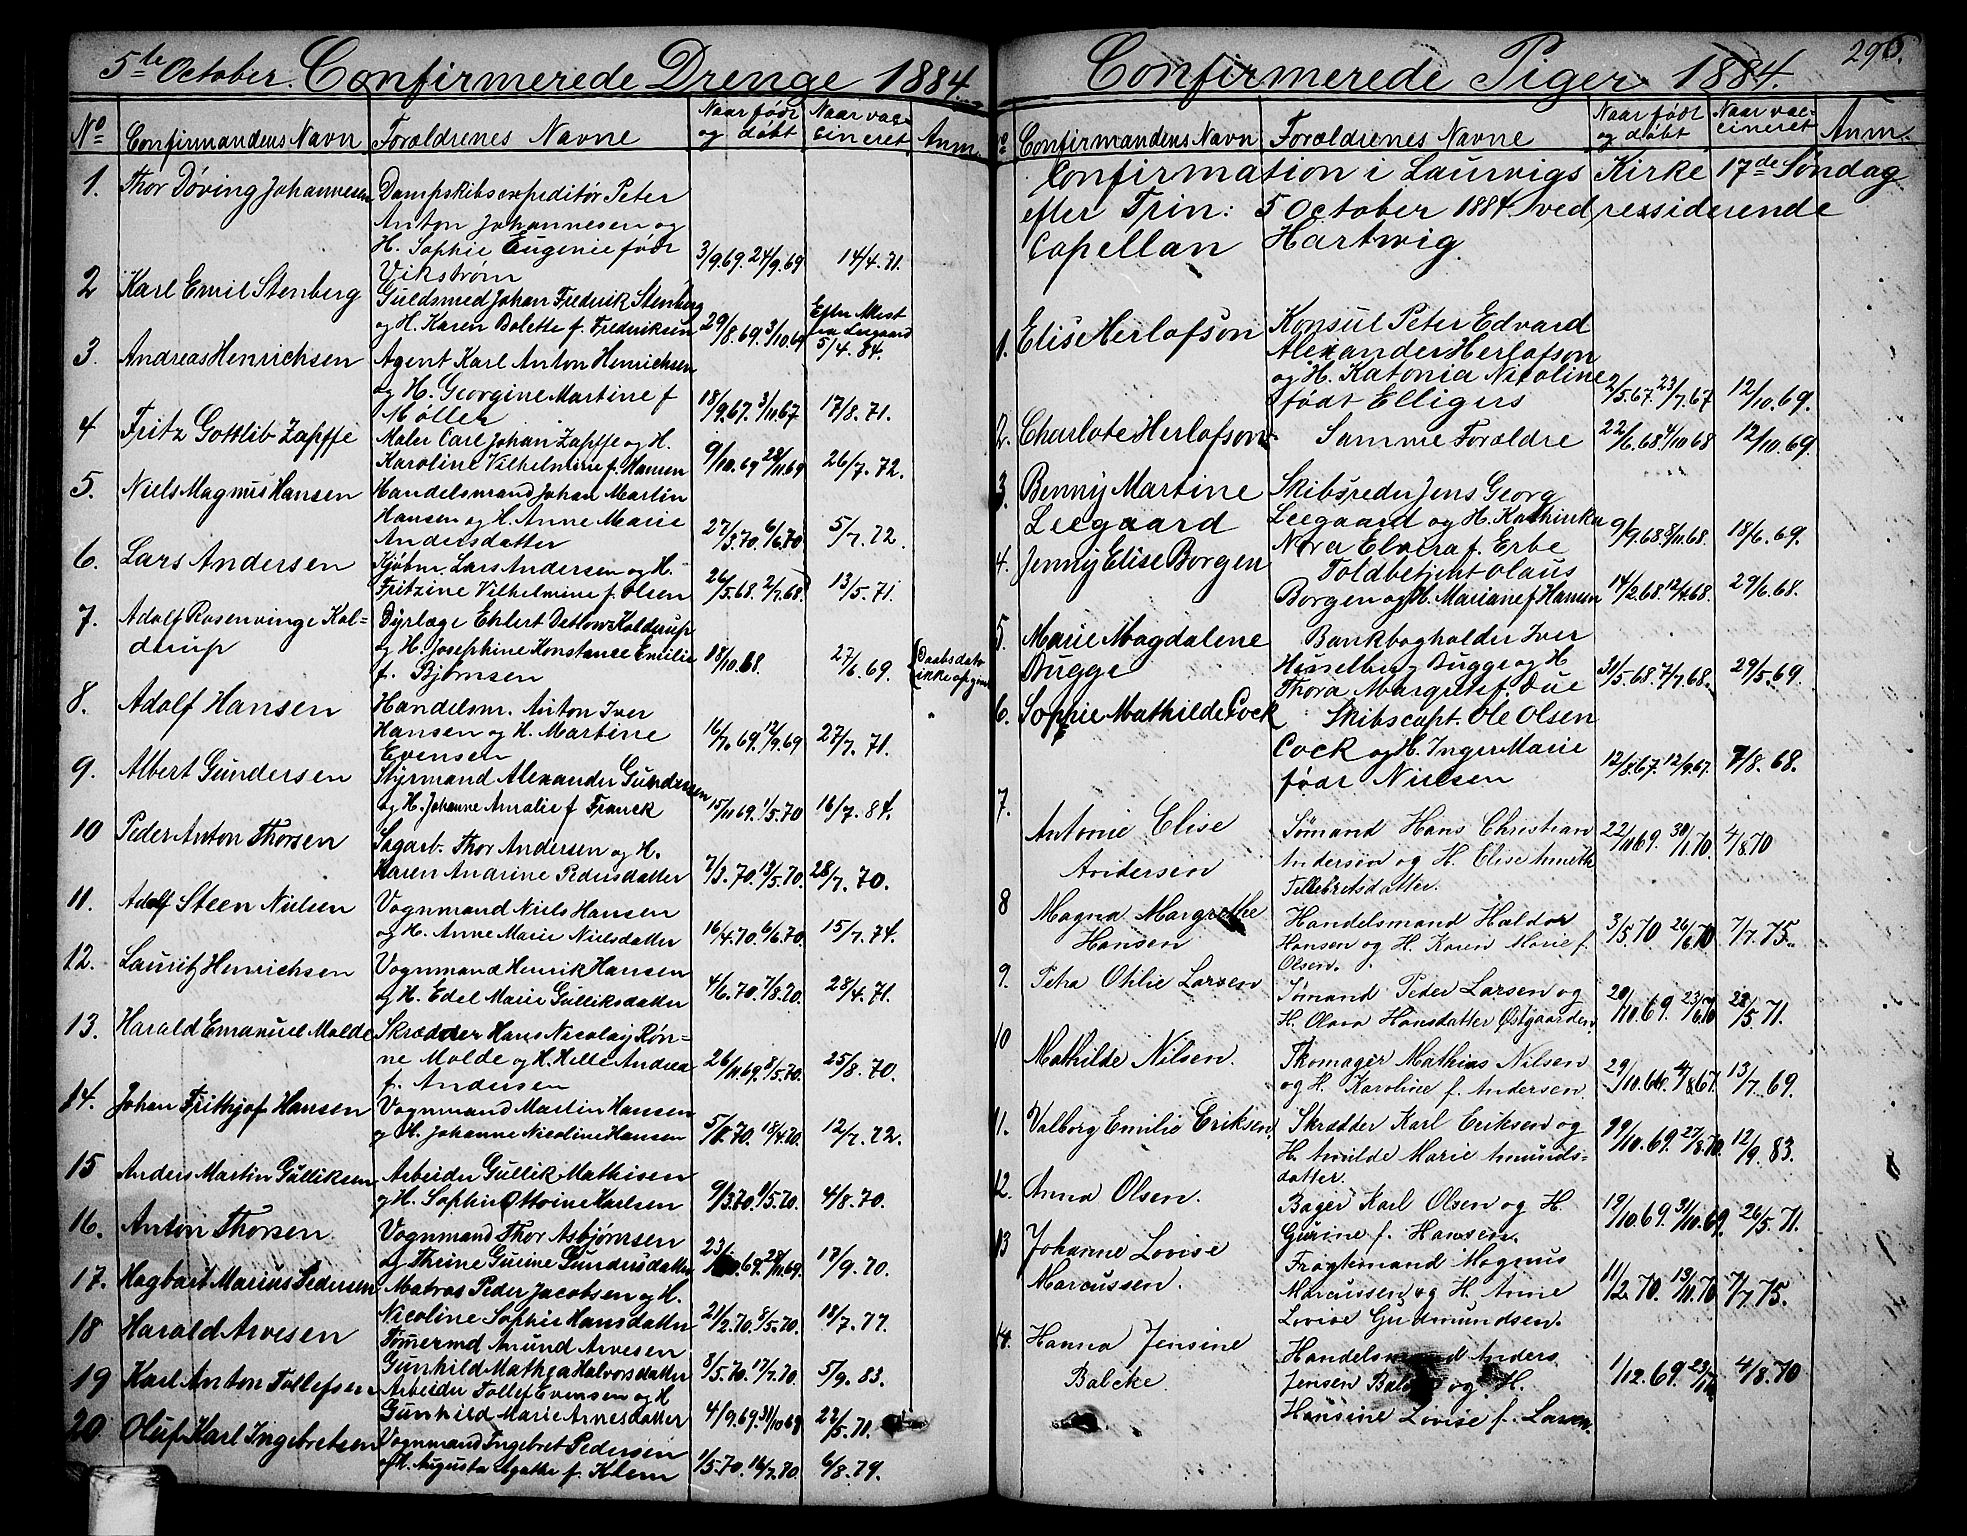 5te October. Confirmerede Drenge 1884.
No Confirmandens Navn Forældrenes Navne Naar født og døbt Naar vaccineret Anm.
1. Thor Døving Johannesen Dampskibsexpeditør Peter
Anton Johannesen og
H. Sophie Eugenie født
Vikstrøm 3/9.69. 24/9.69 14/4.71.
2 Karl Emil Stenberg Guldsmed Johan Frederik Stenberg
og H. Karen Bolette f. Frederiksen 29/8.69 3/10.69 Efter Attest
fra Leegaard
5/4.84.
3. Andreas Henrichsen Agent Karl Anton Henrichsen
og H. Georgine Martine f
Møller 18/9.67. 3/11.67 17/8.71.
4 Fritz Gottlib Zapffe Maler Carl Johan Zapffe og H.
Karoline Vilhelmine f. Hansen 9/10.69 28/11.69 26/7.72.
5. Niels Magnus Hansen Handelsmand Johan Martin
Hansen og H. Anne Marie
Andersdatter 27/3.70. 6/6.70 5/7.72.
6. Lars Andersen Kjøbm. Lars Andersen og H.
Fritzine Vilhelmine f. Olsen 26/5.68. 2/7.68. 13/5.71.
7. Adolf Rosenvinge Kol-
derup Dyrlæge Ehlert Detlow Kolderup
og H. Josephine Konstance Emilie
f. Bjørnsen 18/10.68. 27/6.69. (Daabsdato
ikke opgiven
8. Adolf Hansen Handelsm. Anton Iver
Hansen og H. Martine
Evensen 16/7.69. 12/9.69 27/7.71.
9. Albert Gundersen Styrmand Alexander Gundersen
og H. Johanne Amalie f Franck 15/11.69. 1/5.70 16/7.84.
10 Peder Anton Thorsen Sagarb. Thor Andersen og H.
Karen Andrine Pedersdatter 7/3.70. 13/5.70. 28/7.70.
11. Adolf Steen Nielsen Vognmand Niels Hansen
og H. Anne Marie Nielsdatter 16/4.70. 6/6.70. 15/7.74.
12. Lauritz Henrichsen Vognmand Henrik Hansen
og H. Edel Marie Gulliksdatter 4/6.70. 7/8.70. 28/4.71.
13. Harald Emanuel Molde Skrædder Hans Nicolay Røn-
ne Molde og H. Helle Andrea
f. Andersen 26/11.69. 8/5.70. 25/8.70.
14. Johan Frithjof Hansen Vognmand Martin Hansen
og H. Johanne Nicoline Hansen 18/4.70. 12/7.72.
15 Anders Martin Gulliksen Arbeider Gullik Mathisen
og H. Sophie Ottoine Karlsen 9/3.70. 8/5.70. 4/8.70.
16. Anton Thorsen Vognmand Thor Asbjørnsen
og Theine Gurine Gundersdatter 23/10.69. 28/11.69. 17/9.70.
17. Hagbart Marius Pedersen Matros Peder Jacobsen og H.
Nicoline Sophie Hansdatter 21/2.70. 8/5.70. 18/7.77.
18 Harald Arvesen Tømermd Amund Arvesen
Gunhild Mathea Halvorsdatter 8/5.70. 17/7.70 5/9.83.
19 Karl Anton Tollefsen Arbeider Tollef Evensen og H
Gunhild Marie Arnesdatter 4/9.69. 31/10.69 22/5.71.
20 Oluf Karl Ingebretsen Vognmand Ingebret Pedersen
og H. Augusta Agathe f. Klem 1/5.70. 16/7.70. 6/8.79.
Confirmerede Piger 1884. 296.
No Confirmandens Navn Forældrenes Navne Naar født og døbt Naar vaccineret Anm.
Confirmation i Laurvigs Kirke 17de Søndag
efter Trin: 5 October 1884 ved residerende
Capellan Hartwig
1. Elise Herlofson Konsul Peter Edvard
Alexander Herlofson
og H. Katonia Nicoline
født Elligers 2/5.67. 23/7.67 12/10.69.
2. Charlote Herlofson Samme Forældre 22/6.68. 4/10.68 12/10.69.
3. Benny Martine
Leegaard Skibsreder Jens Georg
Leegaard og H. Kathinka
Nora Elvira f. Erbe 9/9.68. 8/11.68. 18/6.69.
4. Jenny Elise Borgen Toldbetjent Olaus
Borgen og H. Mariane f Hansen 14/2.68. 12/4.68. 29/6.68.
5. Marie Magdalene
Bugge Bankbogholder Iver
Hesselberg Bugge og H
Thora Margrete f. Due 31/5.68. 7/7.68. 29/5.69.
6. Sophie Mathilde Cock Skibscapt. Ole Olsen
Cock og H. Inger Marie
født Nielsen 12/8.67. 12/9.67. 7/8.68.
7. Antonie Elise
Andersen Sømand Hans Christian
Andersen og H. Elise Annette
Tellebretsdatter. 22/11.69. 30/1.70. 4/8.70
8 Magna Margrethe
Hansen Handelsmand Haldor
Hansen og H. Karen Marie f.
Olsen. 3/5.70 26/6.70 7/7.75.
9. Petra Othlie Larsen Sømand Peder Larsen og
H. Olava Hansdatter Østgaarden 20/10.69. 23/6.70 28/5.71.
10 Mathilde Nilsen. Skomager Mathias Nilsen
og H. Karoline f. Andersen. 29/10.66. 4/8.67. 13/7.69.
11. Valborg Emilie Eriksen. Skrædder Karl Eriksen og
H. Amilde Marie Amunds-
datter. 29/10.69. 27/8.70. 12/9.83.
12. Anna Olsen. Bager Karl Olsen og H.
Gurine f. Hansen. 12/10.69. 31/10.69. 26/5.71.
13 Johanne Lovise
Marcussen. Fragtemand Magnus
Marcussen og H. Anne
Lovise Gudmundsen. 11/2.70. 13/11.70 7/7.75.
14. Hanna Jensine
Balcke. Handelsmand Anders
Jensen og H.
Hansine Lovise f. Larsen. 1/12.69. 4/8.70